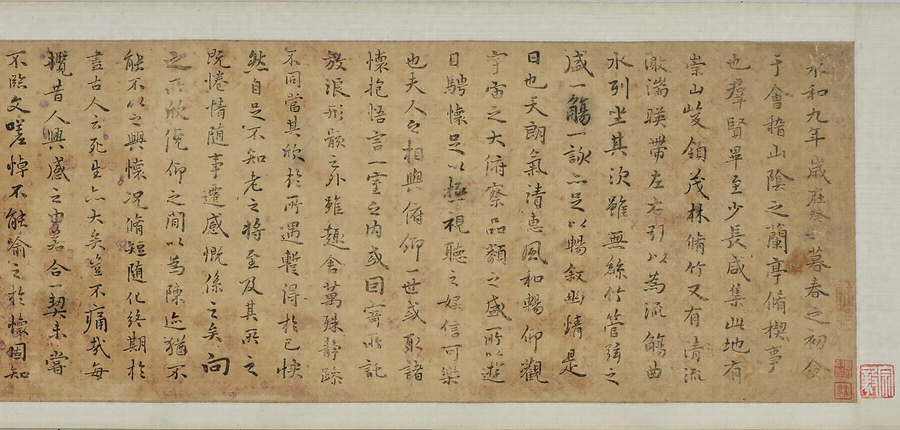 永和九年歲在癸暮春之初會
于會稽山陰之蘭亭脩稧事
也羣賢畢至少長咸集此地有
崇山峻領茂林脩竹又有清流
激湍暎帶左右引以為流觴曲
水列坐其次雖無絲竹管弦之
盛一觴一詠亦足以暢敘幽情是
日也天朗氣清惠風和暢仰觀
宇宙之大俯察品類之盛所以遊
目騁懷足以極視聽之娛信可樂
也夫人之相與俯仰一世或取諸
懷抱悟言一室之內或因寄所託
放浪形骸之外雖趣舍萬殊靜躁
不同當其欣於所遇暫得於己快
然自足不知老之將至及其所之
既惓情隨事遷感慨係之矣向
之所欣俛仰之間以為陳迹猶不
能不以之興懷況脩短隨化終期於
盡古人云死生亦大矣豈不痛哉每
攬昔人興感之由若合一契未嘗
不臨文嗟悼不能喻之於懷固知